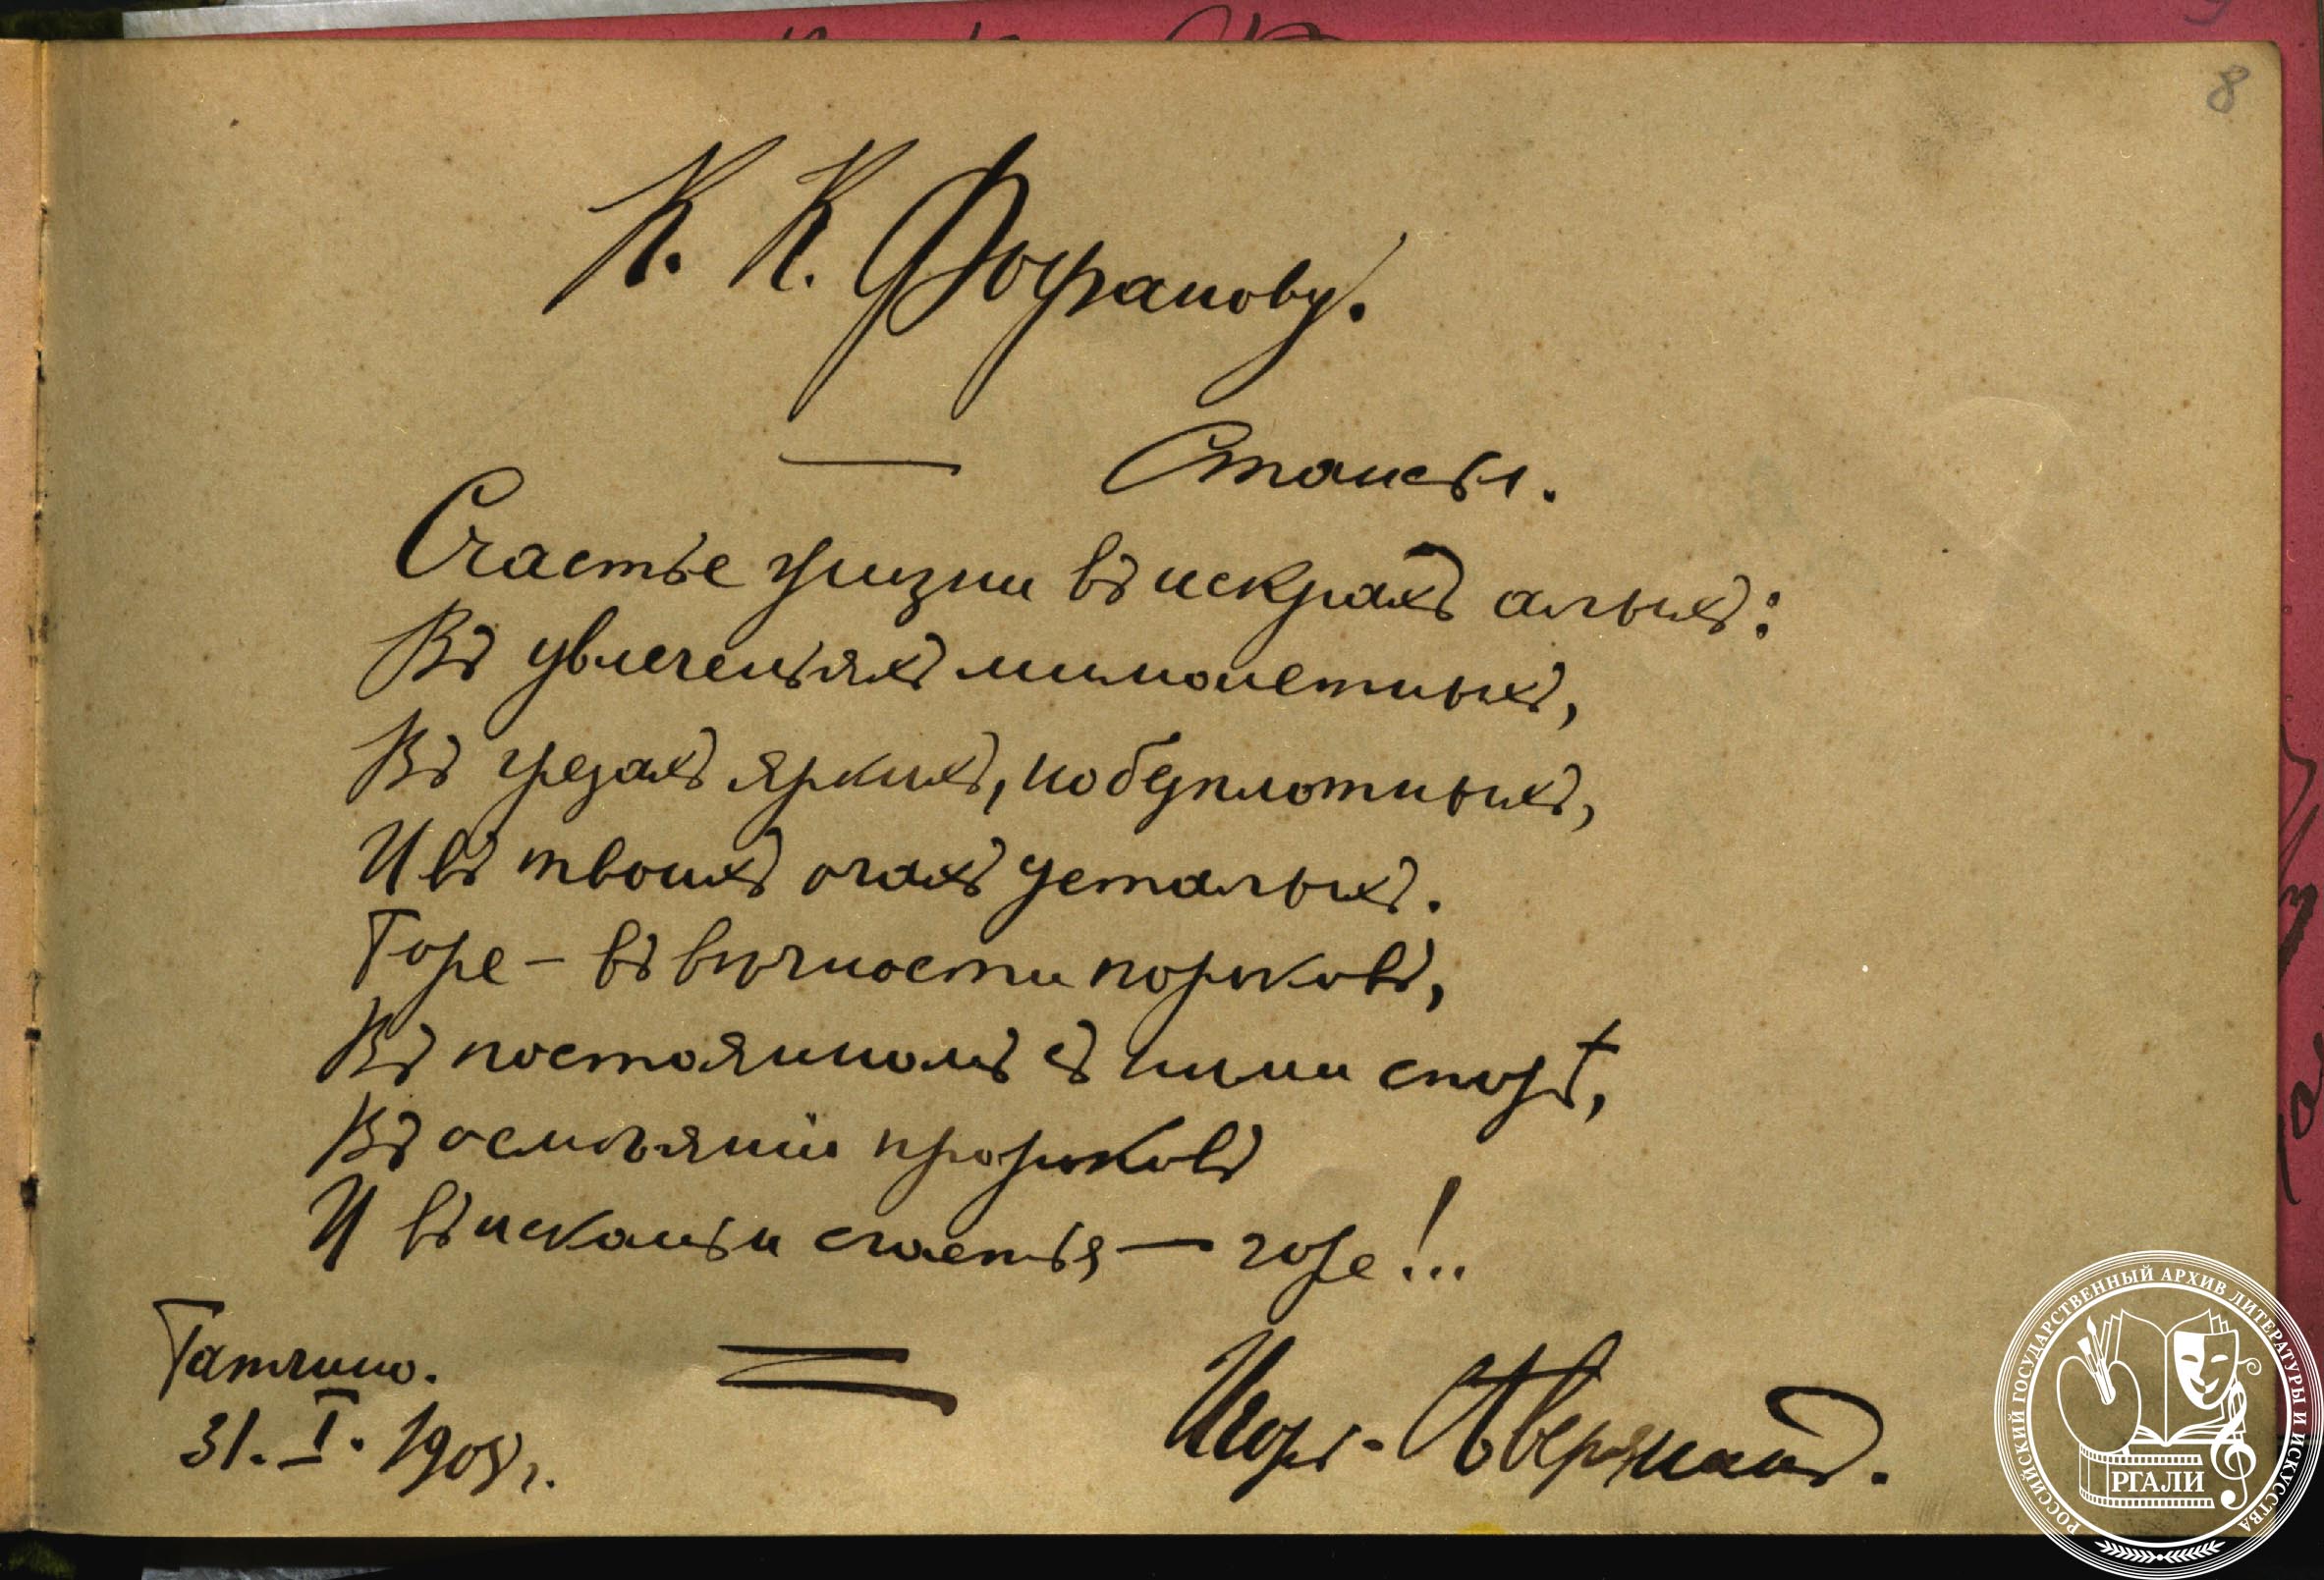 8
К. К. Фофанову.
Стансы.
Счастье жизни въ искрахъ алыхъ:
Въ увлеченьяхъ мимолетныхъ,
Въ грезахъ яркихъ, но безплотныхъ,
И въ твоихъ очахъ усталыхъ.
Горе – въ вѣчности пороковъ,
Въ постоянномъ съ ними спорѣ,
Въ осмѣяніи пророковъ
И въ исканьи счастья — горе!...
Гатчино.
31. I. 1908 г.
Игорь-Сѣверянинъ.
РОССИЙСКИЙ ГОСУДАРСТВЕННЫЙ АРХИВ ЛИТЕРАТУРЫ И ИСКУССТВА
РГАЛИ